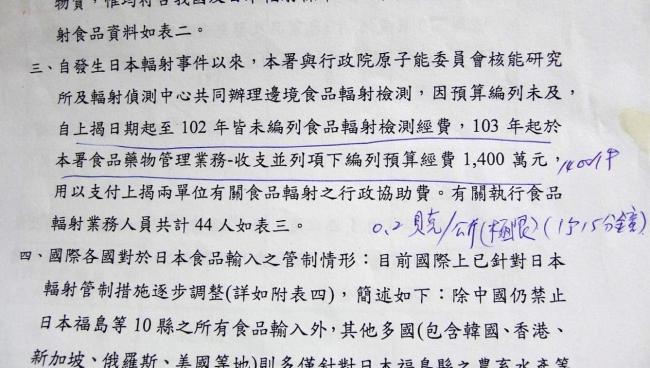 射食品資料如表二。
三、自發生日本輻射事件以來，本署與行政院原子能委員會核能研究
所及輻射偵測中心共同辦理邊境食品輻射檢測，因預算編列未及，
自上揭日期起至 102 年皆未編列食品輻射檢測經費，103 年起於
本署食品藥物管理業務-收支並列項下編列預算經費 1,400 萬元，
用以支付上揭兩單位有關食品輻射之行政協助費。有關執行食品
輻射業務人員共計 44 人如表三。
0.2 貝克/公斤(極限)(1小15分鐘)
四、國際各國對於日本食品輸入之管制情形：目前國際上已針對日本
輻射管制措施逐步調整(詳如附表四)，簡述如下：除中國仍禁止
日本福島等 10 縣之所有食品輸入外，其他多國(包含韓國、香港、
新加坡、俄羅斯、美國等地)則多僅針對日本福島縣之農畜水產等